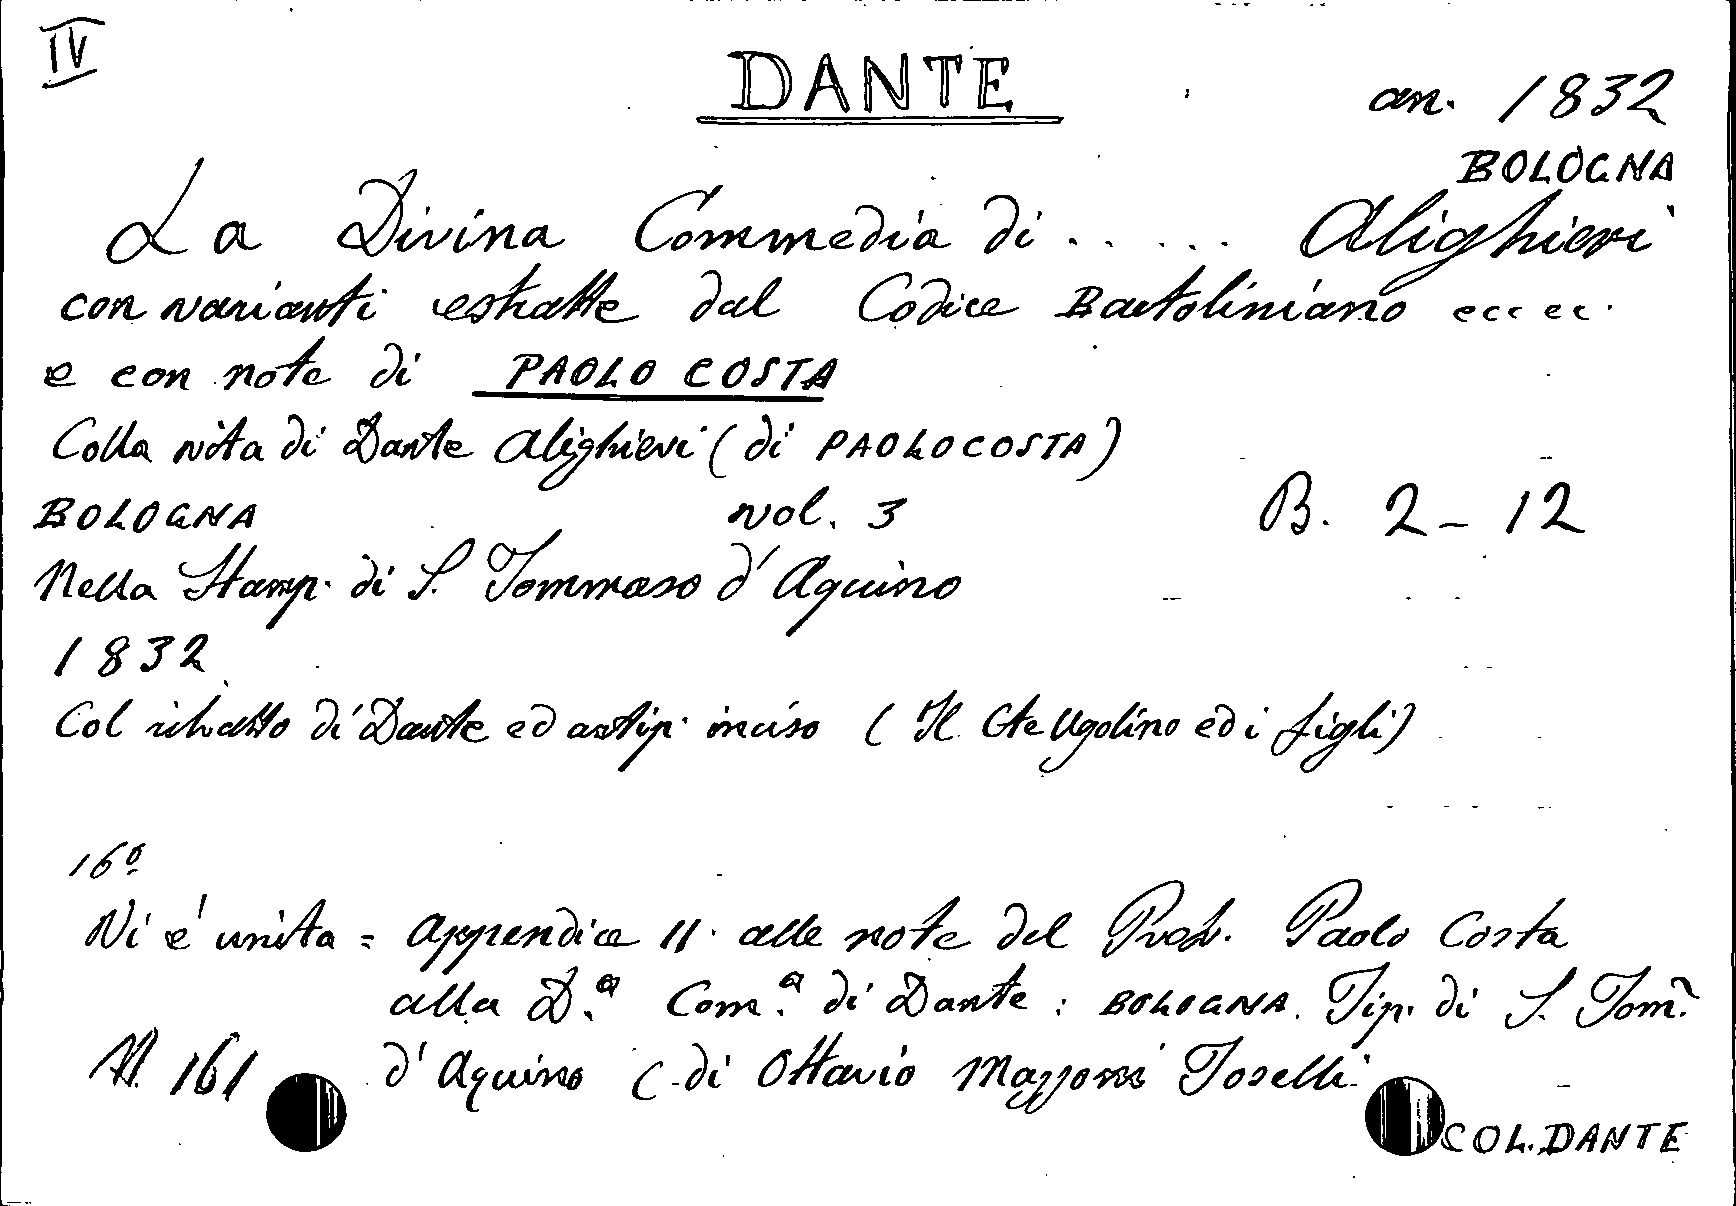 IV
DANTE
an. 1832
BOLOGNA
La Divina Commedia di ..... Alighieri
con varianti estratte dal Codice Bartoliniano ecc ec.
e con note di PAOLO COSTA
Colla vita di Dante Alighieri (di PAOLO COSTA)
BOLOGNA vol. 3 B. 2-12
Nella Stamp. di S. Tommaso d'Aquino
1832
Col ritratto di Dante ed antip. inciso (Il Cte Ugolino ed i figli)
16º
Vi é unita = Appendice II. alle note del Prof. Paolo Costa
alla D.ª Com.ª di Dante: BOLOGNA. Tip. di S. Tom.
N. 161 d'Aquino (di Ottavio Mazzoni Toselli
COL. DANTE